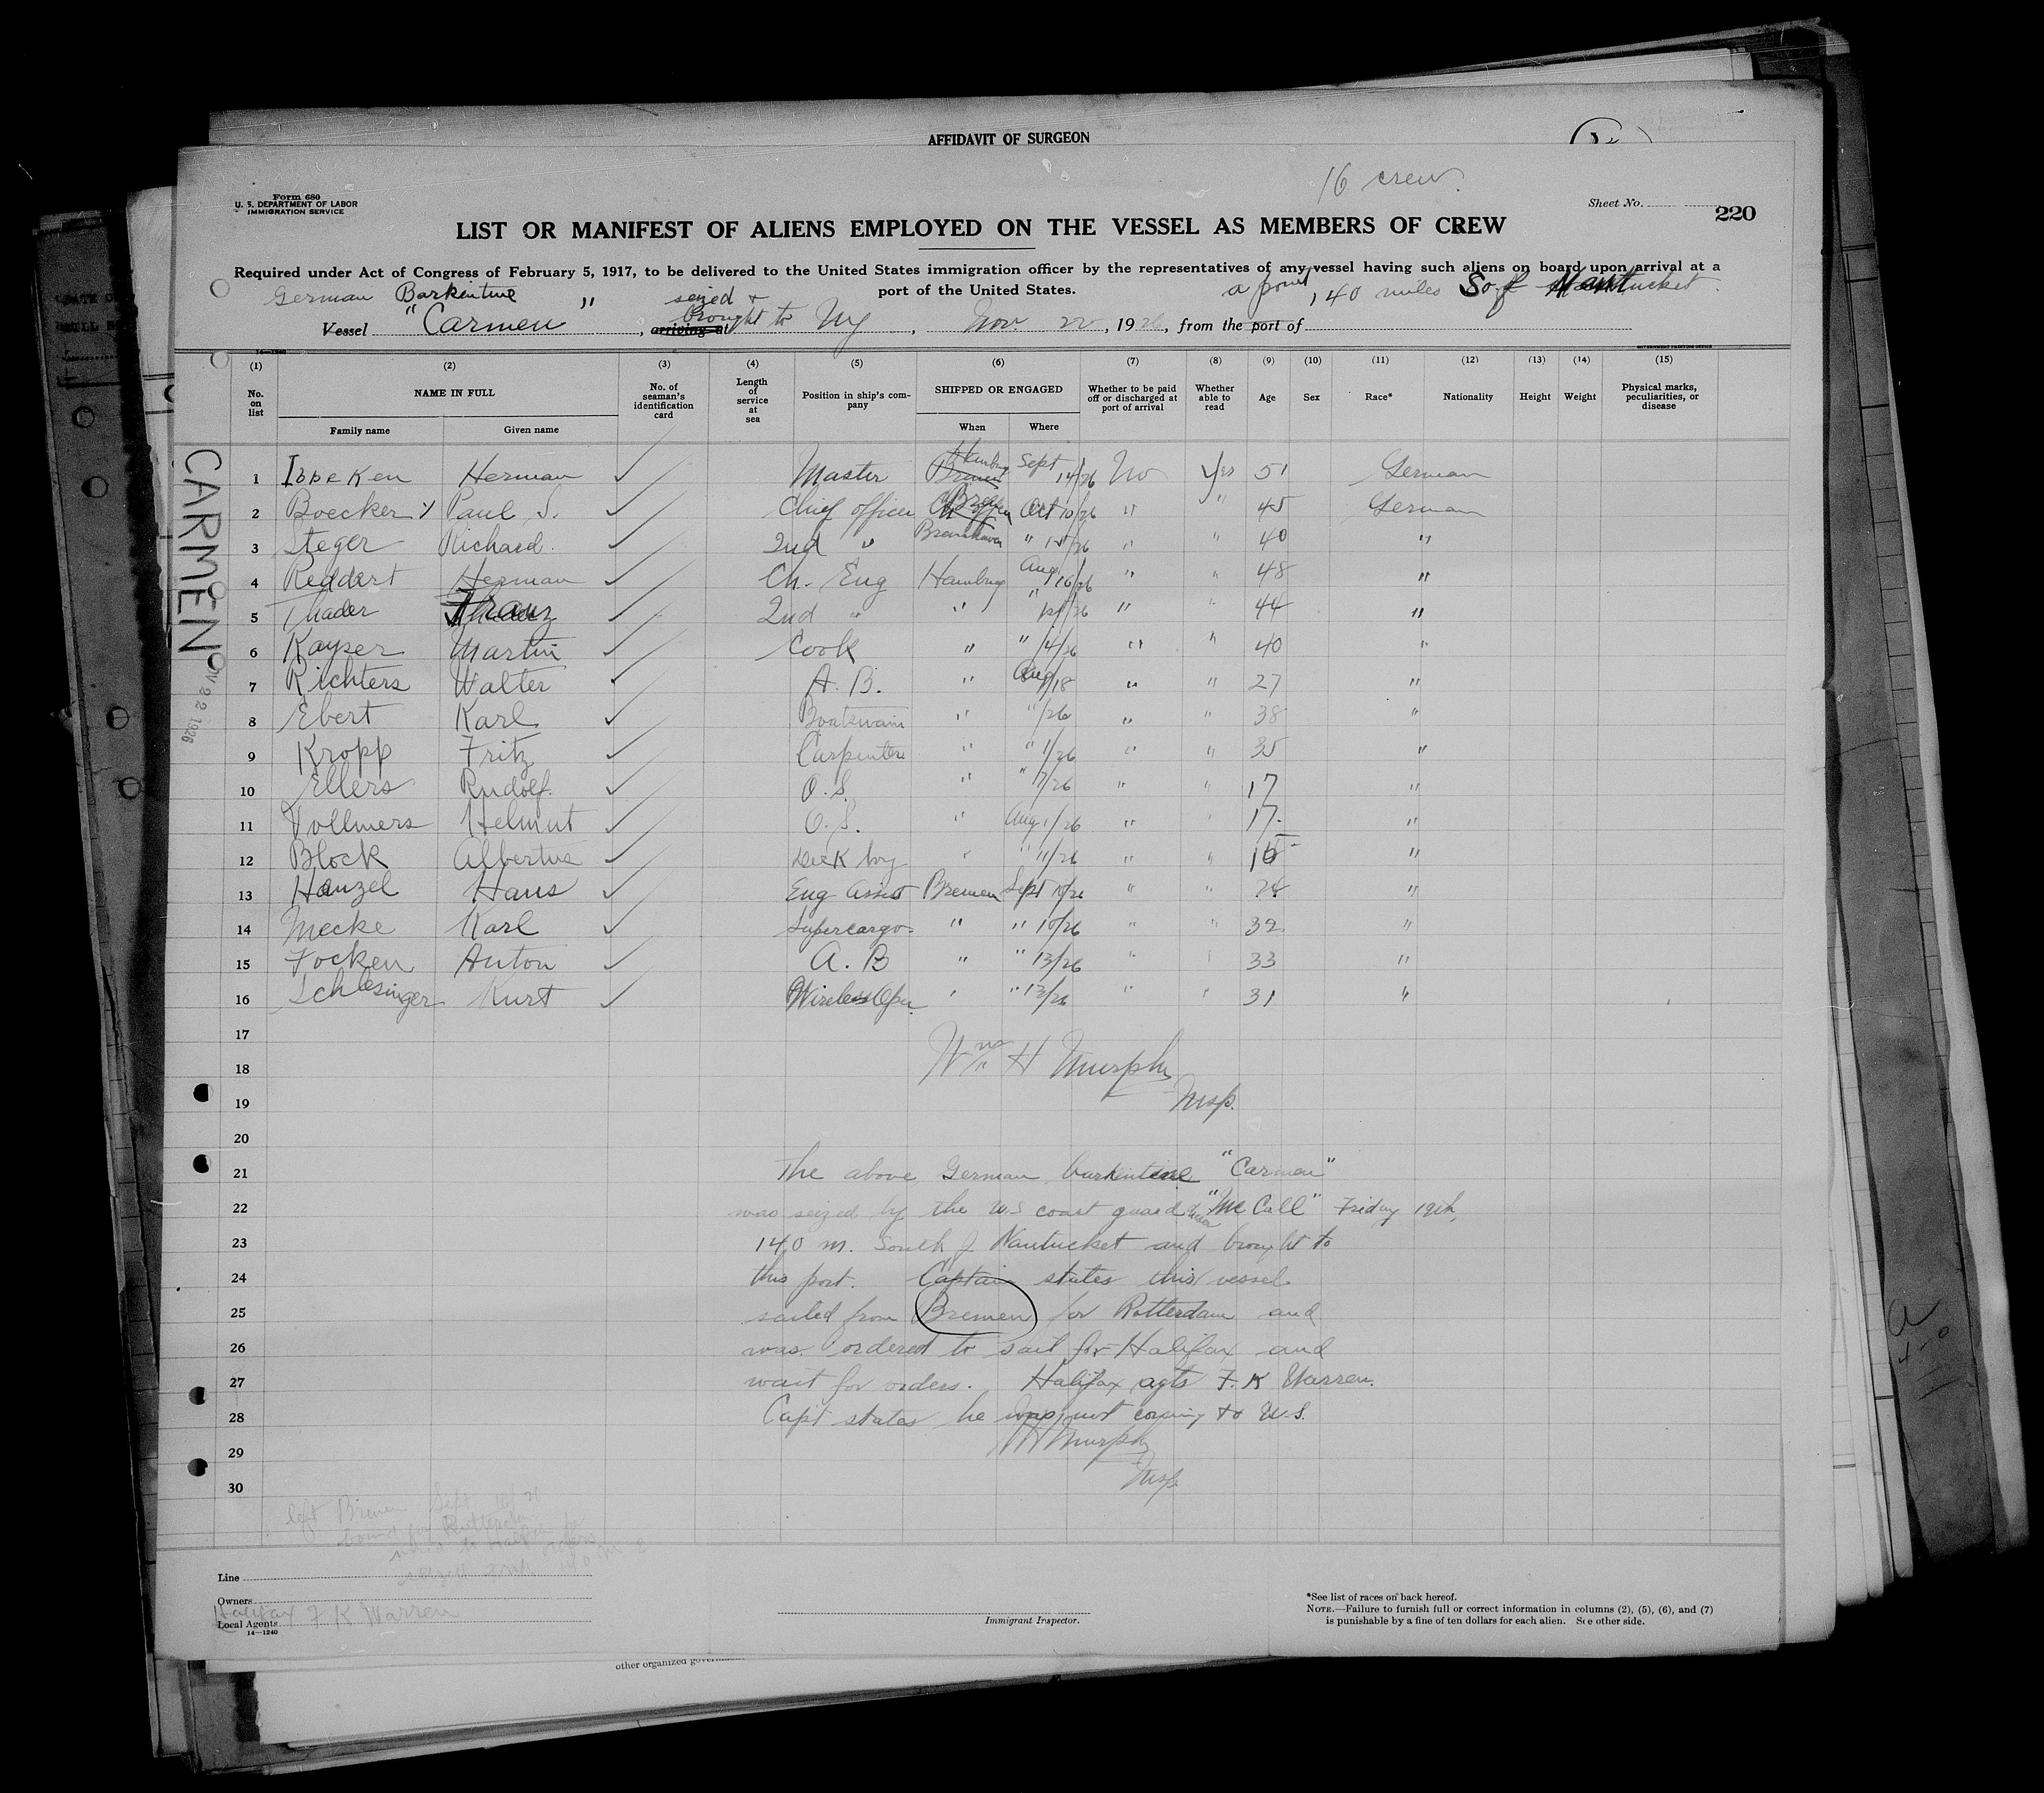 AFFIDAVIT OF SURGEON
16 crew.
Form 680
U. S. DEPARTMENT OF LABOR
IMMIGRATION SERVICE
Sheet No.
220
LIST OR MANIFEST OF ALIENS EMPLOYED ON THE VESSEL AS MEMBERS OF CREW
Required under Act of Congress of February 5, 1917, to be delivered to the United States immigration officer by the representatives of any vessel having such aliens on board upon arrival at a
port of the United States.
German Barkentine seized & a point 140 miles So of Nantucket
Vessel "Carmen", arriving at brought to NY, Nov. 22, 1926, from the port of
14—1240
(1) (2) (3) (4) (5) (6) (7) (8) (9) (10) (11) (12) (13) (14) (15)
No. on list NAME IN FULL No. of seaman's identification card Length of service at sea Position in ship's company SHIPPED OR ENGAGED Whether to be paid off or discharged at port of arrival Whether able to read Age Sex Race* Nationality Height Weight Physical marks, peculiarities, or disease
Family name Given name When Where
CARMEN
NOV 22 1926
1 Ibbeken Herman Master Hamburg Sept 14/26 No Yes 51 German
2 Boecker Paul S. Chief officer Oct 10/26 " " 45 German
3 Steger Richard 2nd " Bremerhaven " 15/26 " " 40 "
4 Reddert Herman Ch. Eng Hamburg Aug 16/26 " " 48 "
5 Thader Franz 2nd " " " /26 " " 44 "
6 Kayser Martin Cook " " 14/26 " " 40 "
7 Richters Walter A. B. " Aug 1/18 " " 27 "
8 Ebert Karl Boatswain " " /26 " " 38 "
9 Kropp Fritz Carpenter " " 1/26 " " 35 "
10 Ellers Rudolf O. S. " " 7/26 " " 17 "
11 Vollmers Helmut O. S. " Aug 1/26 " " 17 "
12 Block Albertus Deck boy " " 11/26 " " 15 "
13 Hanzel Hans Eng Assist Bremen Sept 10/26 " " 24 "
14 Mecke Karl Supercargo " " 10/26 " " 32 "
15 Focken Anton A. B " " 13/26 " " 33 "
16 Schlesinger Kurt Wireless Oper. " " 13/26 " " 31 "
17
18 Wm H Murphy
19 Insp.
20
21 The above German barkentine "Carmen"
22 was seized by the U.S coast guard "McCall" Friday 19th,
23 140 m. South of Nantucket and brought to
24 this port. Captain states this vessel
25 sailed from Bremen for Rotterdam and
26 was ordered to sail for Halifax and
27 wait for orders. Halifax agts F. K Warren.
28 Capt states he was not coming to U.S.
29 W H Murphy
30 Insp.
left Bremen Sept
bound for Rotterdam
Line
Owners
Halifax F K Warren
Local Agents
14—1240
Immigrant Inspector.
*See list of races on back hereof.
NOTE.—Failure to furnish full or correct information in columns (2), (5), (6), and (7)
is punishable by a fine of ten dollars for each alien. See other side.
other organized